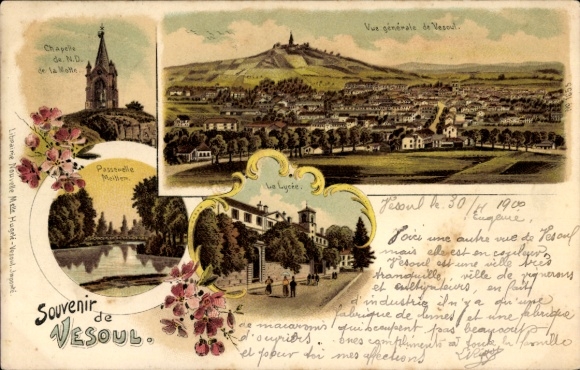 Chapelle
de N.D.
de la Motte
Vue générale de Vesoul.
Passerelle
Le Lycée.
Souvenir
de
VESOUL.
Librairie Nouvelle
Vesoul le 30/ 1900
Eugène,
Voici une autre vue de Vesoul
mais elle est en couleurs
Vesoul est une ville très
tranquille, ville de vignerons
et cultivateurs, en fait
d'industrie il n'y a qu'une
fabrique de limes et une fabrique
de macarons qui occupent pas beaucoup
d'ouvriers. mes compliments à toute la famille
et pour toi mes affections